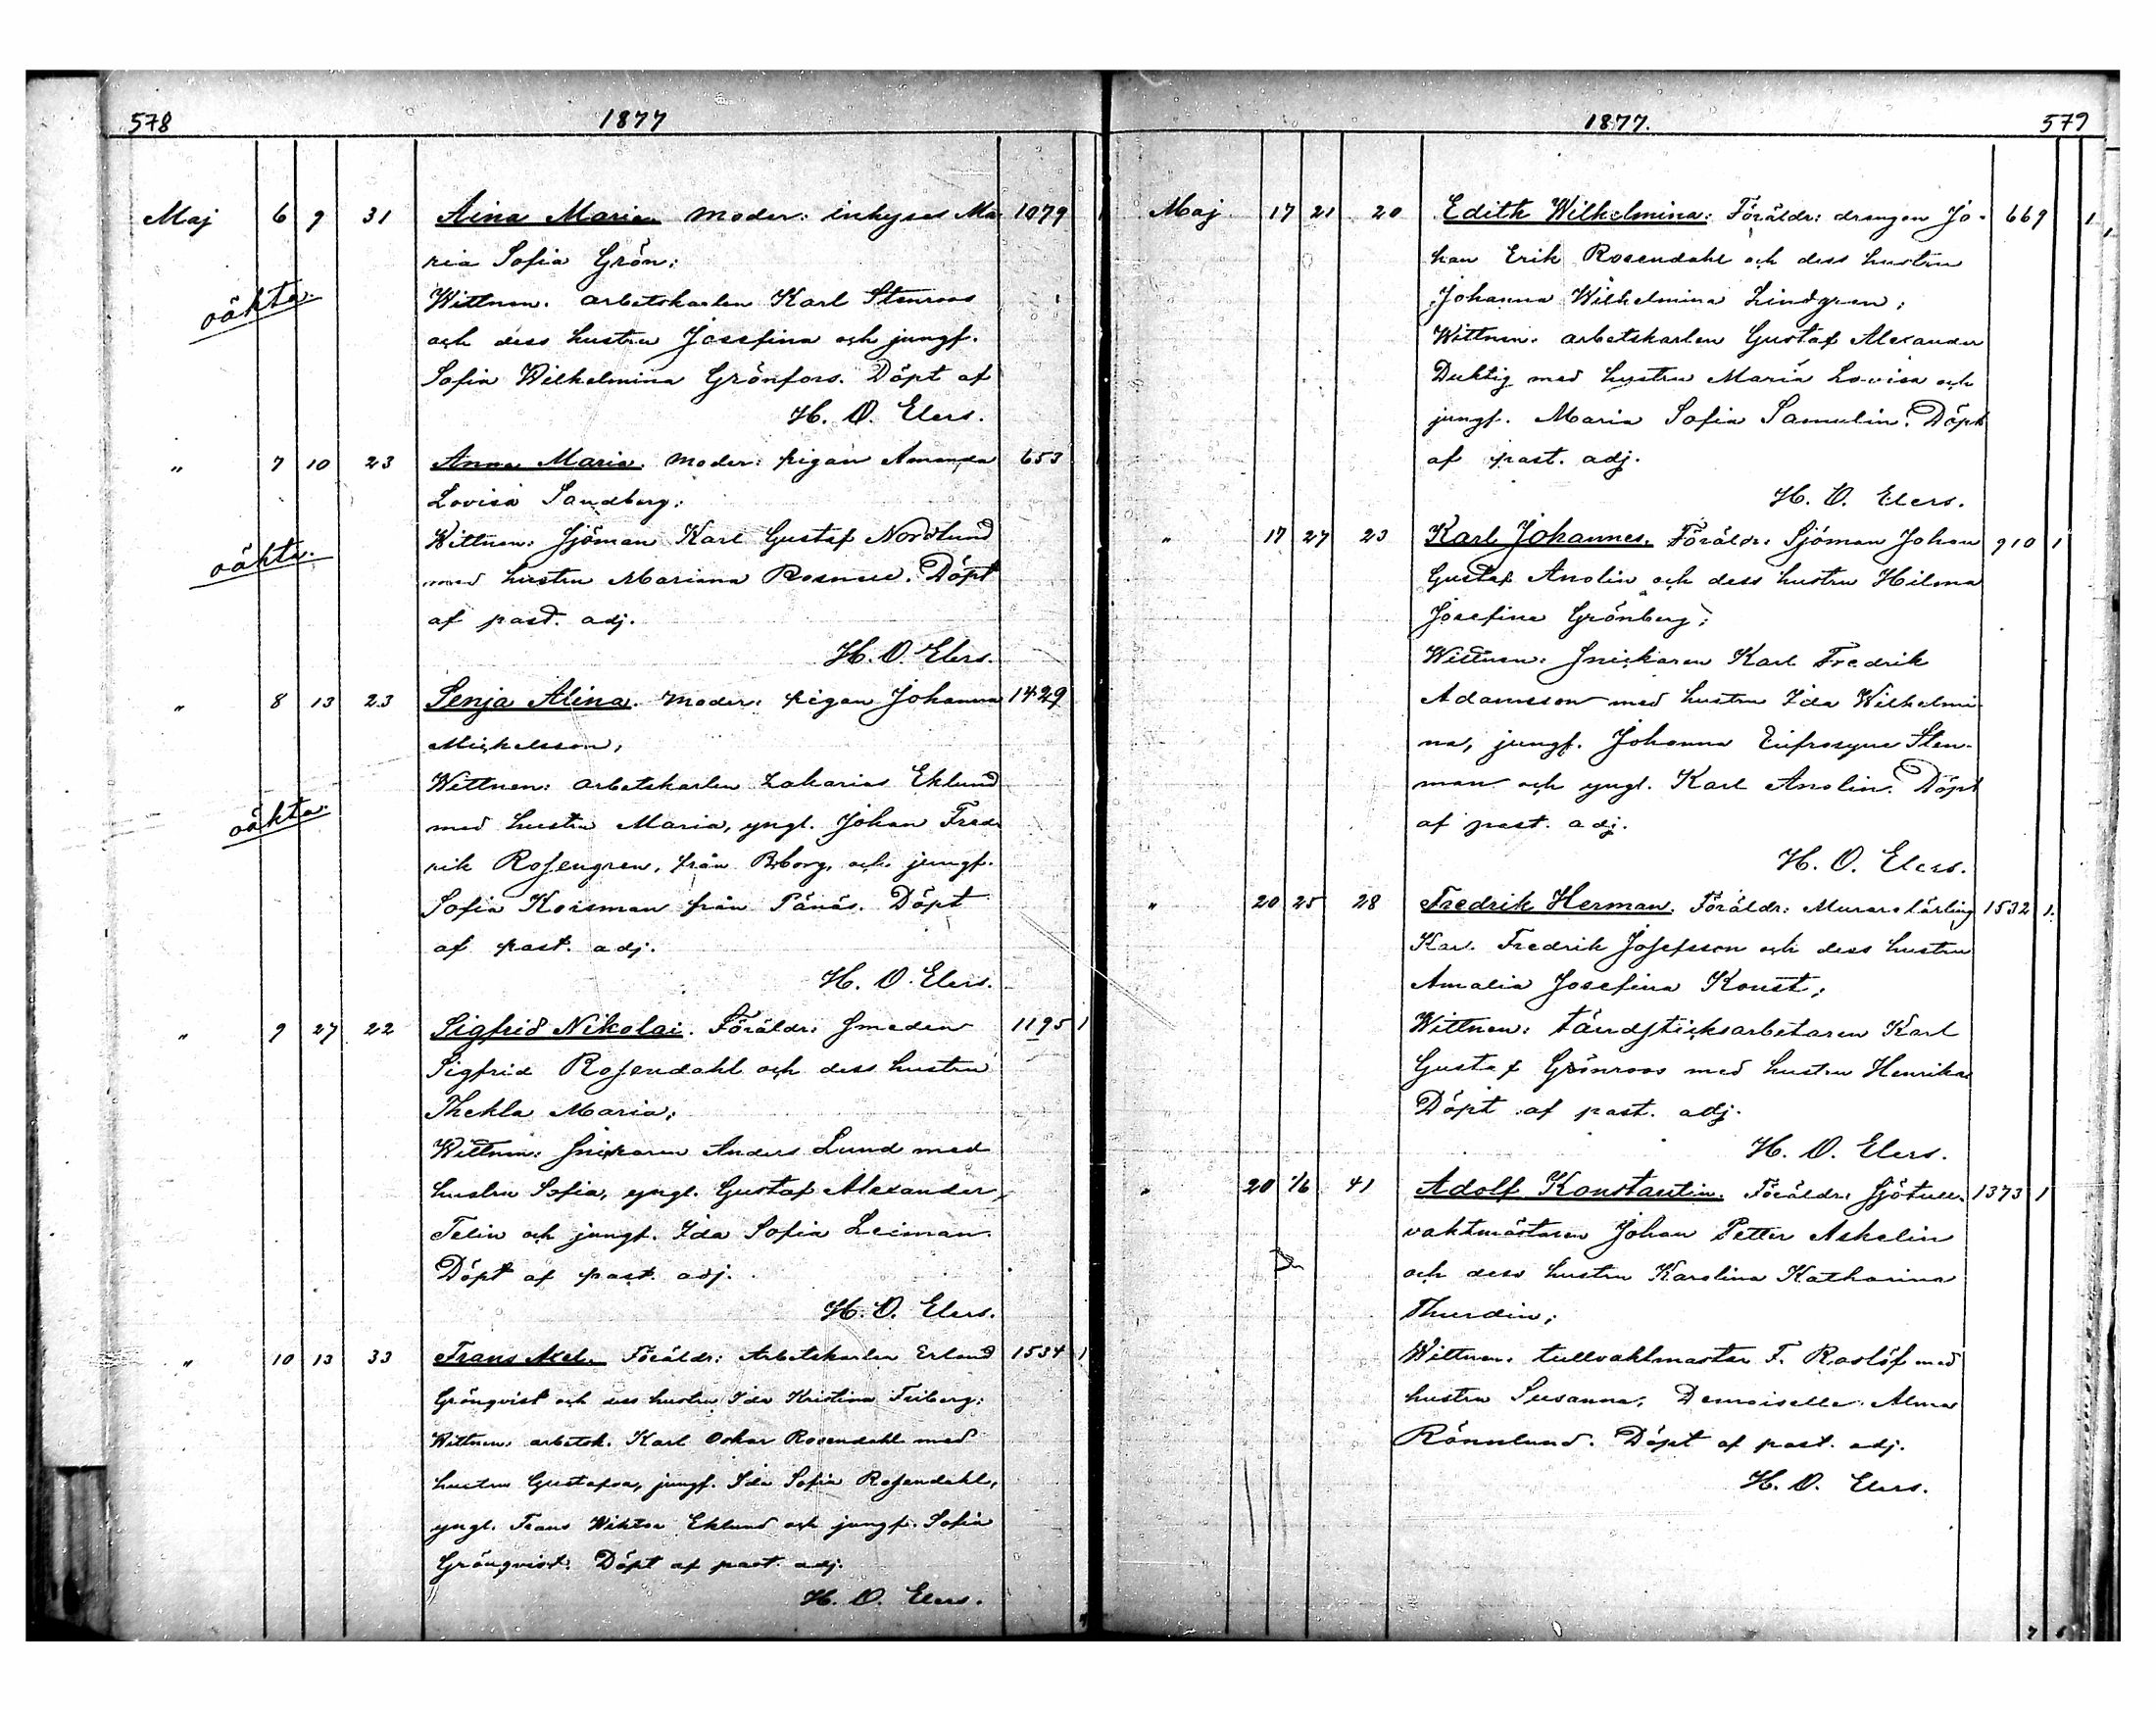 578 1877
Maj 6 9 31 Aina Maria. Moder: inhyses Ma- 1079
ria Sofia Grön;
oäkta. Wittnen: arbetskarlen Karl Stenroos
och dess hustru Josefina och jungf.
Sofia Wilhelmina Grönfors. Döpt af
H. O. Elers.
" 7 10 23 Anna Maria. Moder: pigan Amanda 653
Lovisa Sandberg;
oäkta. Wittnen: Sjöman Karl Gustaf Nordlund
med hustru Mariana. Döpt
af past. adj.
H. O. Elers.
" 8 13 23 Senja Alina. Moder: pigan Johanna 1429
Mickelsson;
Wittnen: arbetskarlen Zakarias Eklund
oäkta. med hustru Maria, yngl. Johan Fred-
rik Rosengren, från Bborg, och jungf.
Sofia Korsman från Pänäs. Döpt
af past. adj.
H. O. Elers.
" 9 27 22 Sigfrid Nikolai. Föräldr: Smeden 1195 1
Sigfrid Rosendahl och dess hustru
Thekla Maria;
Wittnen: Snickaren Anders Lund med
hustru Sofia, yngl. Gustaf Alexander
Telin och jungf. Ida Sofia Leiman.
Döpt af past. adj.
H. O. Elers.
" 10 13 33 Frans Axel. Föräldr: Arbetskarlen Erland 1534 1
Grönqvist och dess hustru Ida Kristina Friberg;
Wittnen: arbetsk. Karl Oskar Rosendahl med
hustru Gustafva, jungf. Ida Sofia Rosendahl,
yngl. Frans Wiktor Eklund och jungf. Sofia
Grönqvist. Döpt af past. adj.
H. O. Elers.
1877. 579
Maj 17 21 20 Edith Wilhelmina: Föräldr: drängen Jo- 669 1
han Erik Rosendahl och dess hustru
Johanna Wilhelmina Lindgren;
Wittnen: arbetskarlen Gustaf Alexander
Duktig med hustru Maria Lovisa och
jungf. Maria Sofia Samulin. Döpt
af past. adj.
H. O. Elers.
" 17 27 23 Karl Johannes. Föräldr: Sjöman Johan 910 1
Gustaf Anolin och dess hustru Hilma
Josefina Grönberg;
Wittnen: Snickaren Karl Fredrik
Adamsson med hustru Ida Wilhelmi-
na, jungf. Johanna Eufrosyne Sten-
man och yngl. Karl Anolin. Döpt
af past. adj.
H. O. Elers.
" 20 25 28 Fredrik Herman. Föräldr: Murarelärling 1532 1.
Karl Fredrik Josefsson och dess hustru
Amalia Josefina Konst;
Wittnen: tändsticksarbetaren Karl
Gustaf Grönroos med hustru Henrika
Döpt af past. adj.
H. O. Elers.
" 20 1/6 41 Adolf Konstantin. Föräldr: Sjötull- 1373 1
vaktmästaren Johan Petter Askelin
och dess hustru Karolina Katharina
Thurdin;
Wittnen: tullvaktmästar F. Roslöf med
hustru Susanna, Demoiselle Alma
Rönnlund. Döpt af past. adj.
H. O. Elers.